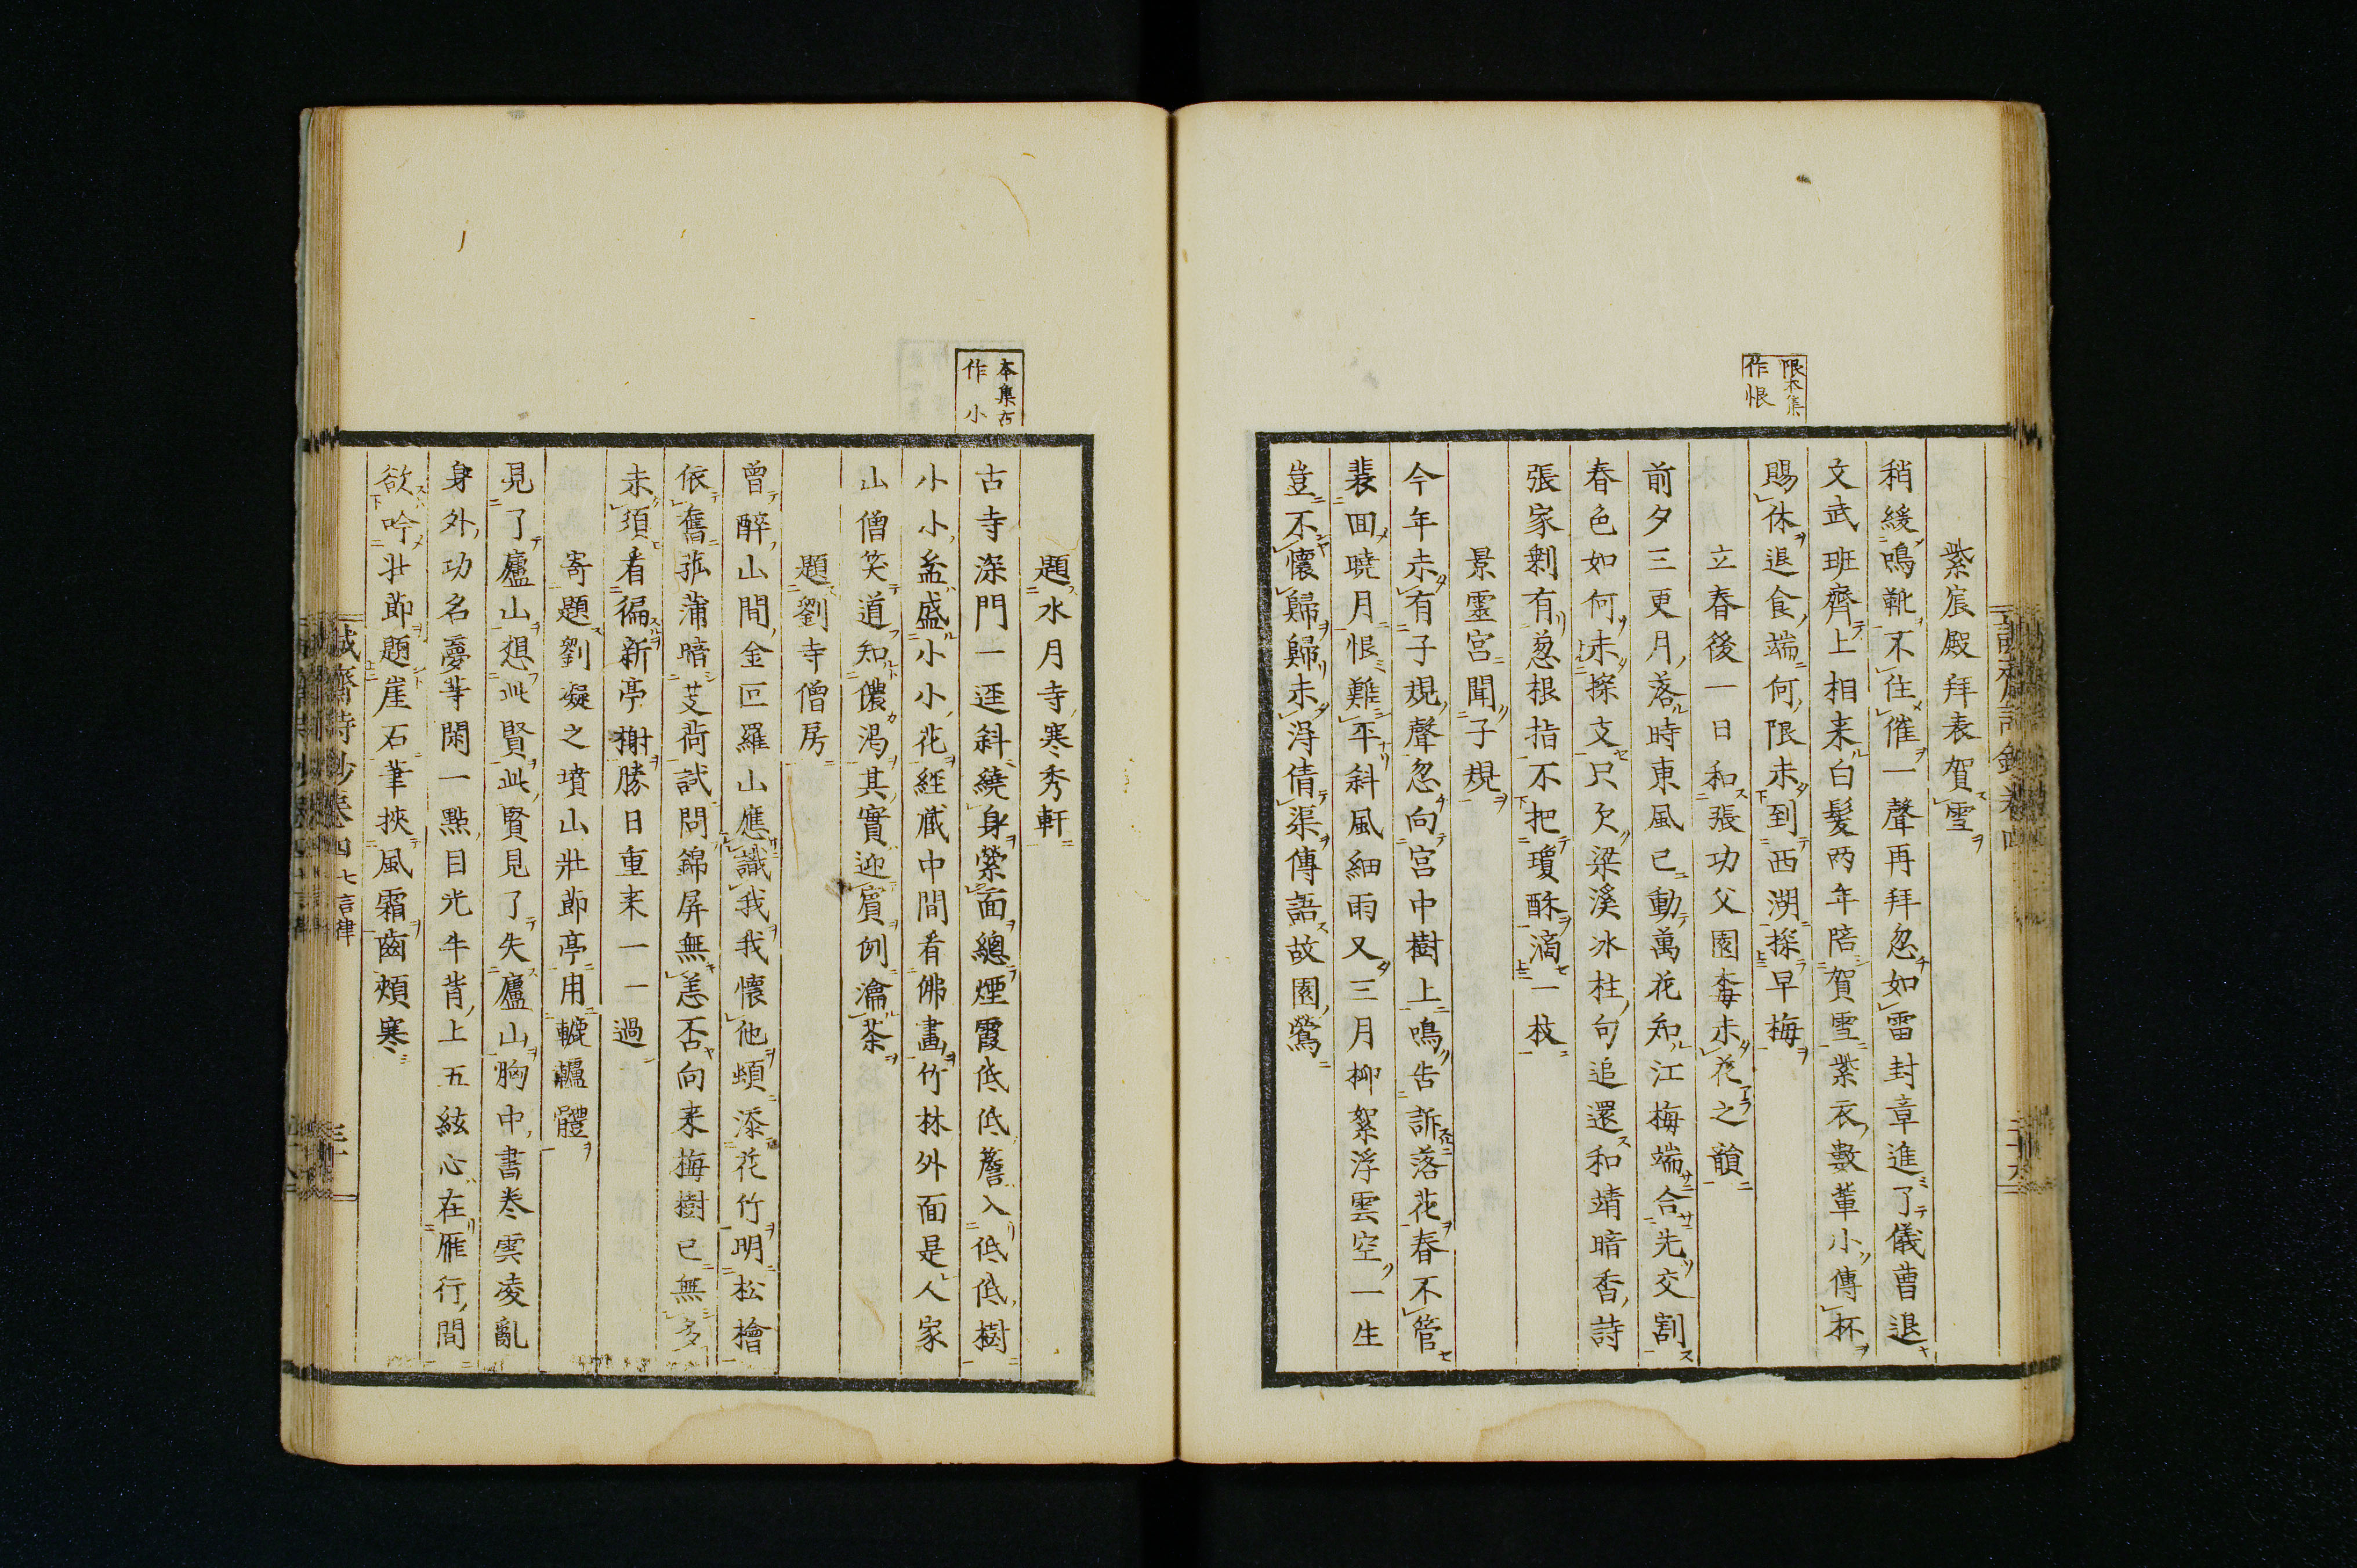 限本集
作恨
紫宸殿拜表賀雪
稍緩鳴鞘不住催一聲再拜忽如雷封章進了儀曹退
文武班齊上相来白髪两年陪賀雪紫衣數輩小傳杯
賜休退食端何限未到西湖探早梅
立春後一日和張功父園梅未花之韻
前夕三更月落時東風已動萬花知江梅端合先交割
春色如何未探支只欠梁溪冰柱句追還和靖暗香詩
張家剩有葱根指不把瓊酥滴一枝
景靈宮聞子規
今年未有子規聲忽向宮中樹上鳴告訴落花春不管
裴回曉月恨難平斜風細雨又三月柳絮浮雲空一生
豈不懷歸歸未得倩渠傳語故園鶯
本集古
作小
題水月寺寒秀軒
古寺深門一逕斜繞身縈面總煙霞低低簷入低低樹
小小盆盛小小花經蔵中間看佛畫竹林外面是人家
山僧笑道知儂渴其實迎賓例瀹茶
題劉寺僧房
曾醉山間金叵羅山應識我我懷他蝢添花竹明松檜
依舊菰蒲暗芰荷試問錦屏無恙否向来梅樹已無多
未須看徧新亭榭勝日重来一一過
寄題劉凝之墳山壯節亭用轆轤體
見了廬山想此賢此賢見了失廬山胸中書卷雲凌亂
身外功名夢等閑一點目光牛背上五絃心在雁行間
欲吟壮節題崖石筆挾風霜齒頰寒
誠齋詩鈔卷四 七言律